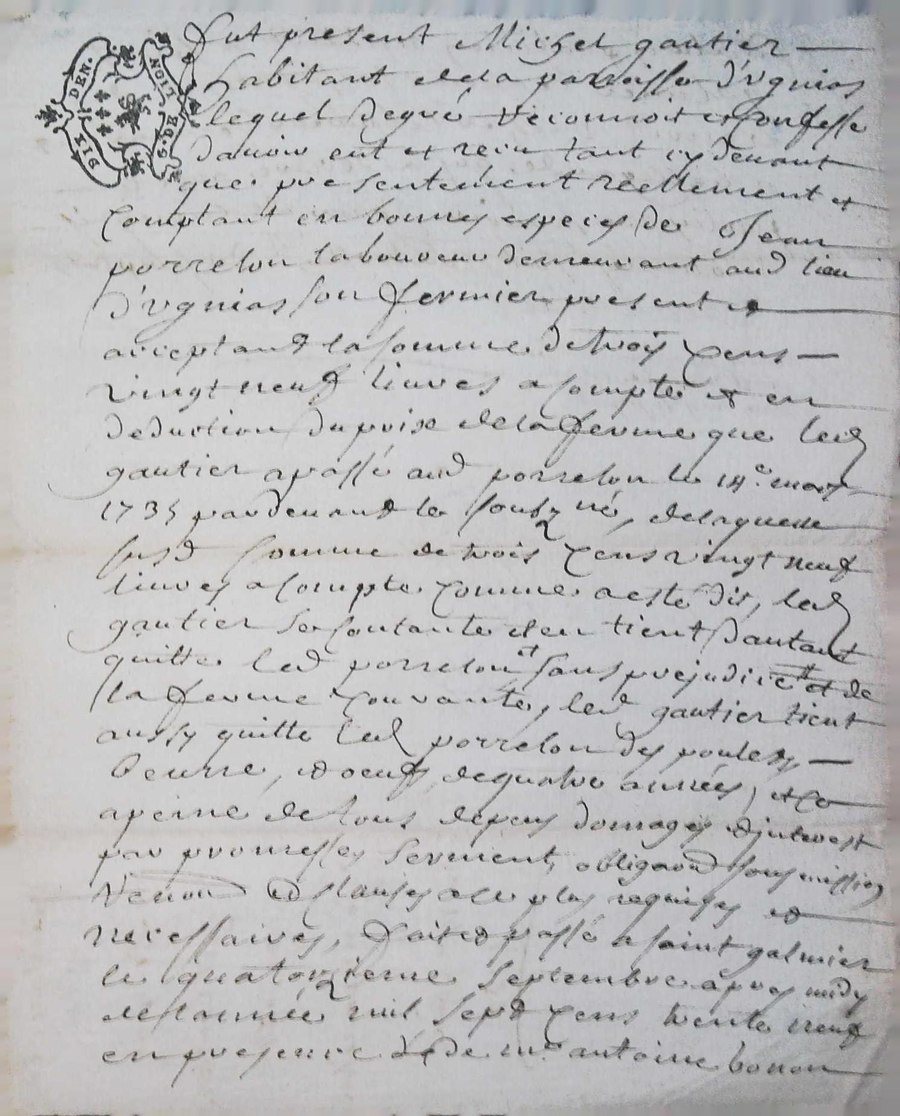 SIX DEN.
G. DE NOIT
fut present Michel gautier
habitant de la parroisse d'vgnias
lequel de gré reconnoit et confesse
d'auoir eut et recu tant cy deuant
que presentement reellement et
comptant en bonnes especes de Jean
porrelon laboureur demeurant aud lieu
d'vgnias son fermier present et
acceptant la somme de trois cens
vingt neuf liures a compte et en
deduction du prix de la ferme que led
gautier a passé aud porrelon le 14e mars
1735 pardeuant le souszné, de laquelle
susd somme de trois cens vingt neuf
liures a compte comme a esté dit, led
gautier se contante et en tient d'autant
quitte led porrelon sans prejudice et de
la ferme courante, led gautier tient
aussy quitte led porrelon des poulets
beurre, et oeufs de quatre années, et ce
a peine de tous depens domages et interest
par promesses serment, obligaon soumission
renon et clauses a ce plus requises et
necessaires, fait et passé a saint galmier
le quatorzieme septembre apres midy
de l'année mil sept cens trente neuf
en presence de me antoine bonon